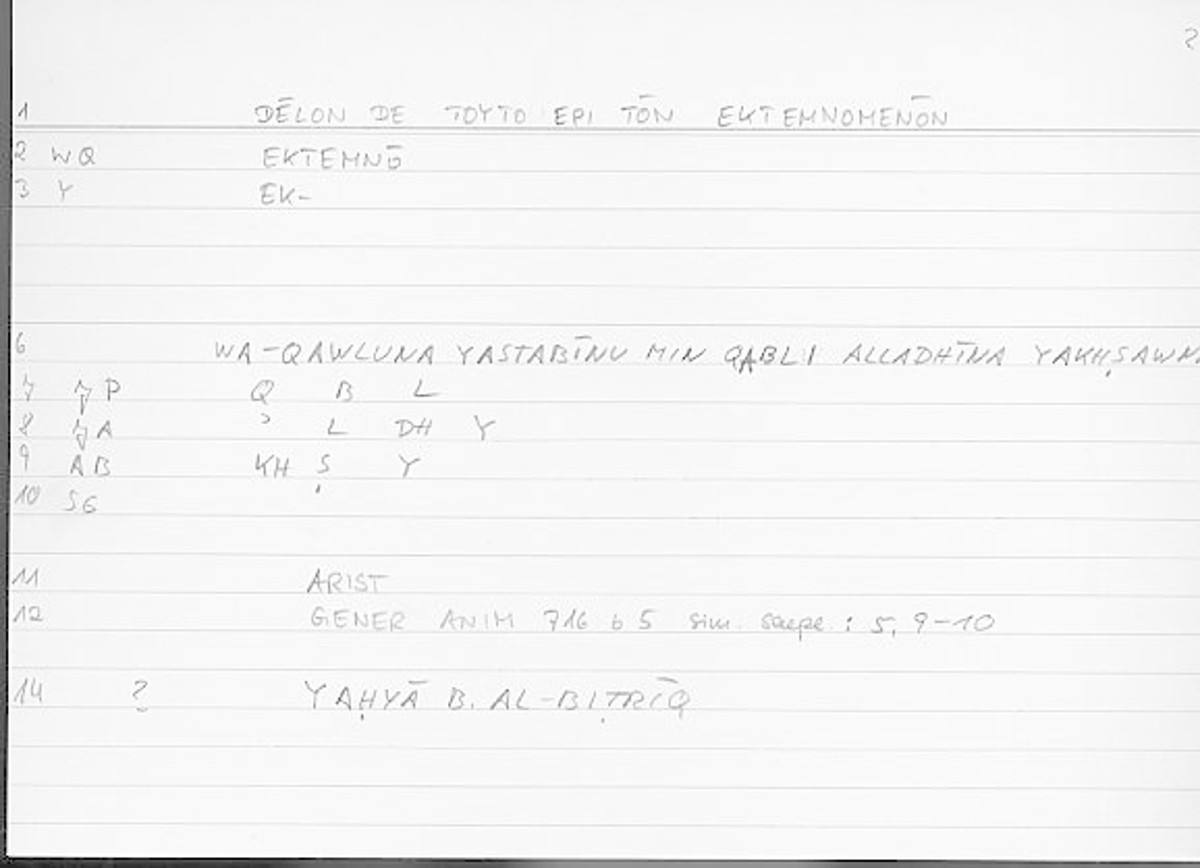 2
1 DĒLON DE TOYTO EPI TŌN EKTEMNOMENŌN
2 WQ EKTEMNŌ
3 Y EK-
6 WA-QAWLUNA YASTABĪNU MIN QABLI ALLADHĪNA YAKHṢAWNA
7 P Q B L
8 A ʾ L DH Y
9 AB KH Ṣ Y
10 SG
11 ARIST
12 GENER ANIM 716 b 5 sim. saepe: 5, 9-10
14 ? YAḤYĀ B. AL-BIṬRĪQ